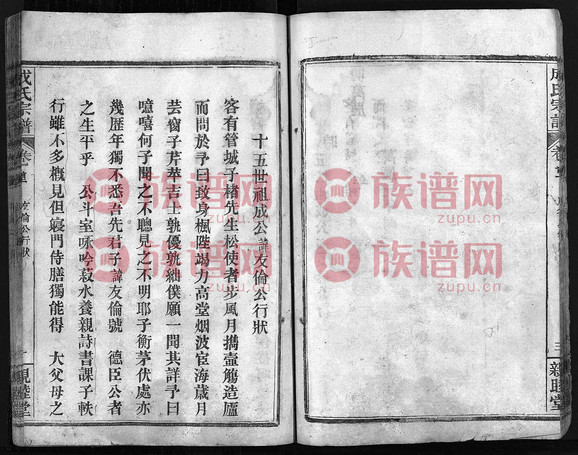 成氏宗譜
三
親睦堂
十五世祖成公諱友倫公行狀
客有管城子楮先生松使者步風月攜壺觴造廬
而問於予曰致身楓陛竭力高堂烟波宦海歲月
芸窗子芹華吉士孰優孰絀僕願一聞其詳予曰
噫嘻何子聞之不聰見之不明耶子衡茅伏處亦
幾歷年獨不悉吾先君子諱友倫號 德臣公者
之生平乎 公斗室咏吟菽水養親詩書課子軼
行雖不多概見但寢門侍膳獨能得 大父母之
成氏宗譜
友倫公行狀
親睦堂
族谱网
zupu.cn
族谱网
zupu.cn
族谱网
zupu.cn
族谱网
zupu.cn